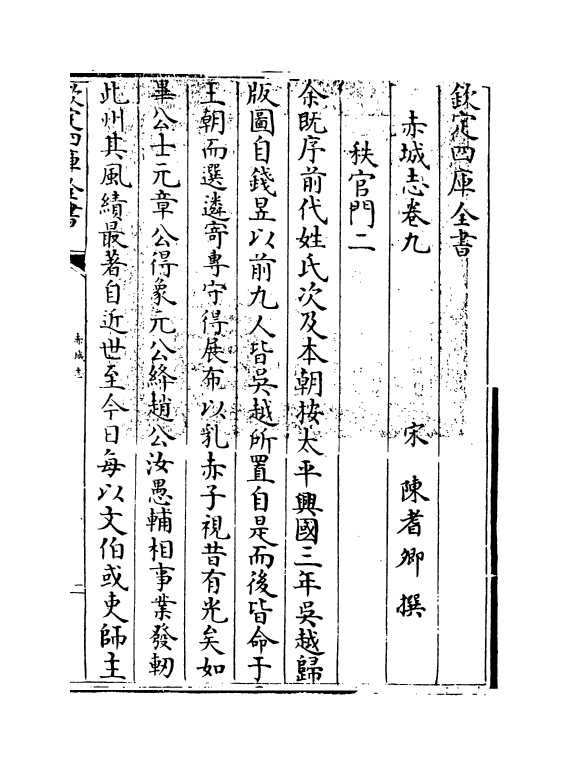 欽定四庫全書
赤城志卷九
宋 陳耆卿 撰
秩官門二
余既序前代姓氏次及本朝按太平興國三年吳越歸
版圖自錢昱以前九人皆吳越所置自是而後皆命于
王朝而選遴寄專守得展布以乳赤子視昔有光矣如
畢公士元章公得象元公絳趙公汝愚輔相事業發軔
此州其風績最著自近世至今日每以文伯或吏師主
欽定四庫全書
赤城志
二